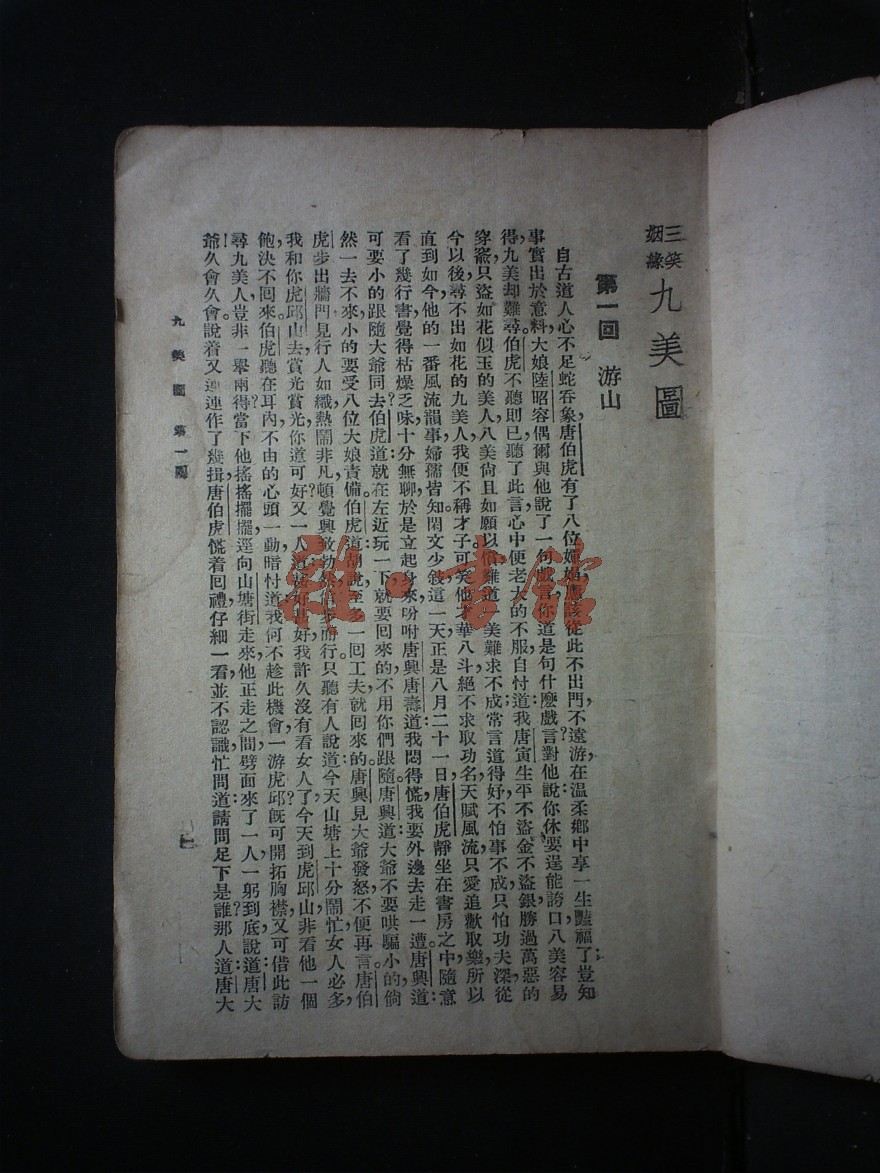 三笑姻緣 九美圖
第一回 游山
自古道人心不足蛇吞象,唐伯虎有了八位娘娘應該從此不出門,不遠游,在温柔鄉中享一生豔福了豈知
事實出於意料,大娘陸昭容偶爾與他說了一句戲言,你道是句什麽戲言?對他說你休要逞能誇口,八美容易
得,九美却難尋。伯虎不聽則已聽了此言心中便老大的不服,自忖道:我唐寅生平不盜金不盜銀,勝過萬惡的
穿窬,只盜如花似玉的美人,八美尙且如願以償,難道一美難求不成;常言道得好,不怕事不成,只怕功夫深,從
今以後,尋不出如花的九美人,我便不稱才子。可笑他才華八斗,絕不求取功名,天賦風流,只愛追歡取樂,所以
直到如今,他的一番風流韻事,婦孺皆知。閑文少敍,這一天正是八月二十一日,唐伯虎靜坐在書房之中,隨意
看了幾行書,覺得枯燥乏味,十分無聊,於是立起身來,吩咐唐興唐壽道:我悶得慌,我要外邊去走一遭。唐興道:
可要小的跟隨大爺同去?伯虎道:就在左近玩一下,就要回來的,不用你們跟隨。唐興道:大爺不要哄騙小的,倘
然一去不來,小的要受八位大娘責備。伯虎道:胡說,至多一回工夫,就回來的。唐興見大爺發怒,不便再言。唐伯
虎步出牆門,見行人如織,熱鬧非凡,頓覺興致勃然,信步而行。只聽有人說道:今天山塘上十分鬧忙,女人必多,
我和你虎邱山去賞光賞光,你道可好?又一人道:好好,我許久沒有看女人了,今天到虎邱山,非看他一個
飽,決不回來。伯虎聽在耳內,不由的心頭一動,暗忖道:我何不趁此機會,一游虎邱,旣可開拓胸襟,又可借此訪
尋九美人,豈非一舉兩得?當下他搖搖擺擺,逕向山塘街走來,他正走之間,劈面來了一人,一躬到底,說道:唐大
爺!久會久會,說着又連連作了幾揖,唐伯虎慌着回禮,仔細一看,並不認識,忙問道:請問足下是誰?那人道:唐大
九美圖 第一回
一